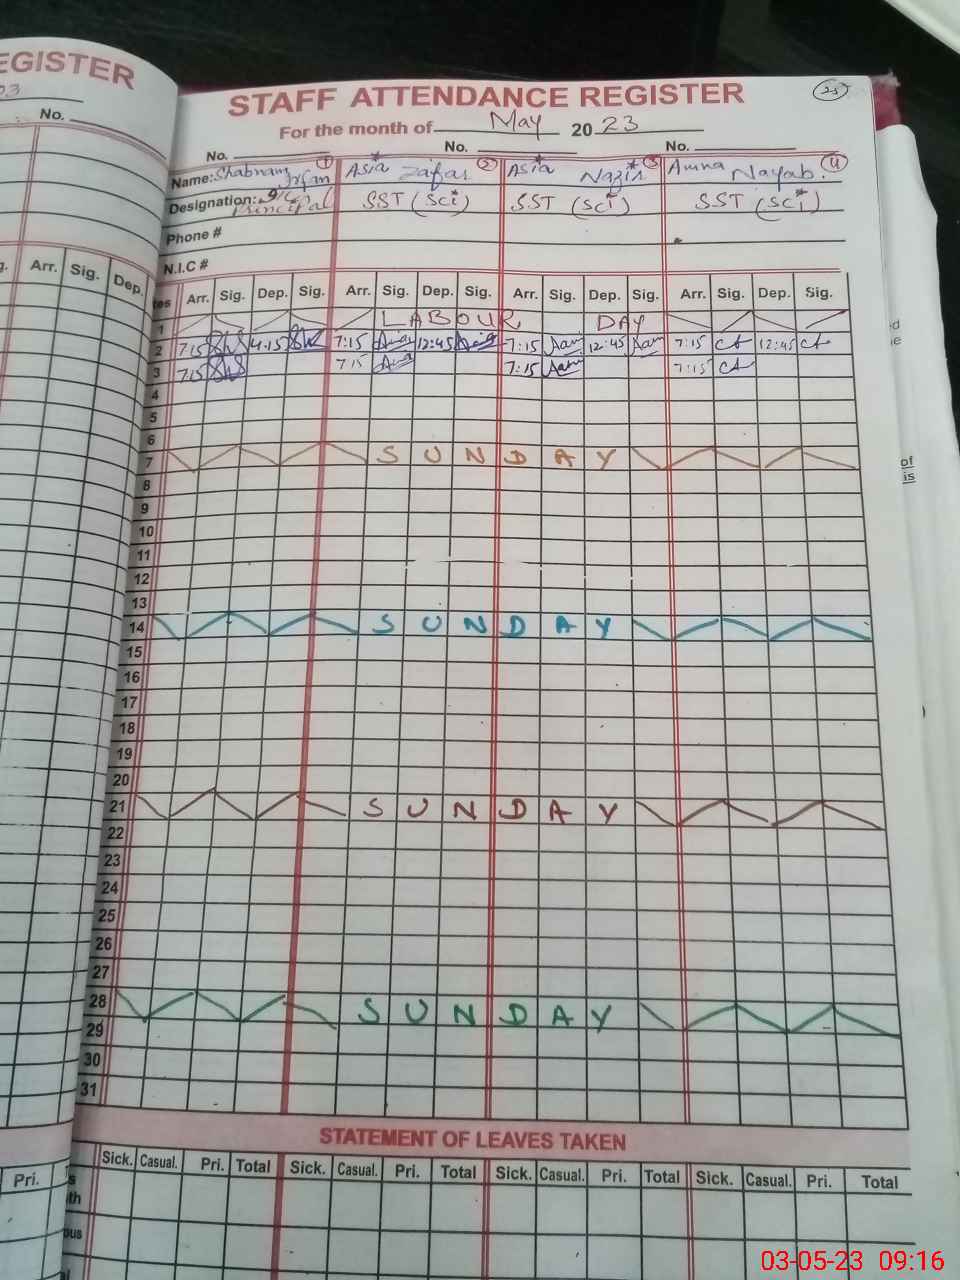 EGISTER
No.
Arr. Sig. Dep.
Pri.
STAFF ATTENDANCE REGISTER
25
For the month of May 2023
No. No. No.
Name: Shabnam Irfan 1 Asia Zafar 2 Asia Nazir 3 Amna Nayab. 4
Designation: Principal SST (Sci) SST (Sci) SST (Sci)
Phone #
N.I.C #
tes Arr. Sig. Dep. Sig. Arr. Sig. Dep. Sig. Arr. Sig. Dep. Sig. Arr. Sig. Dep. Sig.
1 LABOUR DAY
2 7:15 4:15 7:15 12:45 7:15 12:45 7:15 12:45
3 7:15 7:15 7:15 7:15
4
5
6
7 SUNDAY
8
9
10
11
12
13
14 SUNDAY
15
16
17
18
19
20
21 SUNDAY
22
23
24
25
26
27
28 SUNDAY
29
30
31
STATEMENT OF LEAVES TAKEN
Sick. Casual. Pri. Total Sick. Casual. Pri. Total Sick. Casual. Pri. Total Sick. Casual. Pri. Total
of
is
03-05-23 09:16